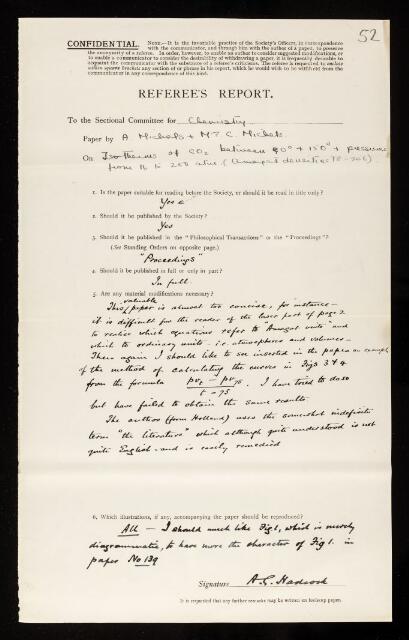 52
CONFIDENTIAL. NOTE.—It is the invariable practice of the Society's Officers, in correspondence
with the communicator, and through him with the author of a paper, to preserve
the anonymity of a referee. In order, however, to enable an author to consider suggested modifications, or
to enable a communicator to consider the desirability of withdrawing a paper, it is frequently desirable to
acquaint the communicator with the substance of a referee's criticisms. The referee is requested to enclose
within square brackets any section of or phrase in his report, which he would wish to be withheld from the
communicator in any correspondence of this kind.
REFEREE'S REPORT.
To the Sectional Committee for Chemistry
Paper by A Michels + Mrs C. Michels
On Isotherms of CO2 between 0° + 150° + pressures
from 16 to 250 atm (Amagat densities 18-206)
1. Is the paper suitable for reading before the Society, or should it be read in title only?
Yes
2. Should it be published by the Society?
Yes
3. Should it be published in the "Philosophical Transactions" or the "Proceedings"?
(See Standing Orders on opposite page.)
"Proceedings"
4. Should it be published in full or only in part?
In full.
5. Are any material modifications necessary?
valuable
This paper is almost too concise, for instance—
it is difficult for the reader of the lower part of page 2
to realise which equations refer to Amagat units and
which to ordinary units - i.e. atmospheres and volumes—
There again I should like to see inserted in the paper an example
of the method of calculating the curves in Figs 3 & 4
from the formula pvt — pv75 / t — 75 . I have tried to do so
but have failed to obtain the same results
The author (from Holland) uses the somewhat indefinite
term "the literature" which although quite understood is not
quite English - and is easily remedied
6. Which illustrations, if any, accompanying the paper should be reproduced?
All — I should much like Fig 1, which is merely
diagrammatic, to have more the character of Fig 1. in
paper No 139
Signature A. G. Hadcock
It is requested that any further remarks may be written on foolscap paper.